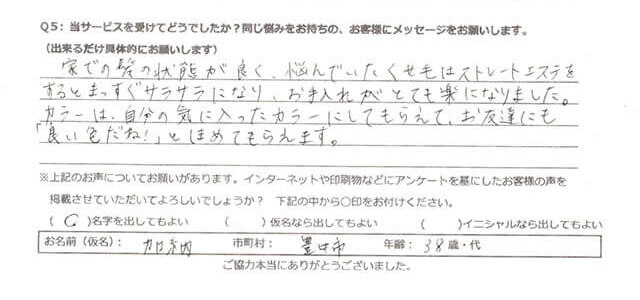 Q5：当サービスを受けてどうでしたか？同じ悩みをお持ちの、お客様にメッセージをお願いします。
（出来るだけ具体的にお願いします）
家での髪の状態が良く、悩んでいたくせ毛はストレートエステを
するとまっすぐサラサラになり、お手入れがとても楽になりました。
カラーは、自分の気に入ったカラーにしてもらえて、お友達にも
「良い色だね！」とほめてもらえます。
※上記のお声についてお願いがあります。インターネットや印刷物などにアンケートを基にしたお客様の声を
掲載させていただいてよろしいでしょうか？　下記の中から〇印をお付けください。
（〇）名字を出してもよい　（　）仮名なら出してもよい　（　）イニシャルなら出してもよい
お名前（仮名）：　市町村：豊中市　年齢：38歳・代
ご協力本当にありがとうございました。